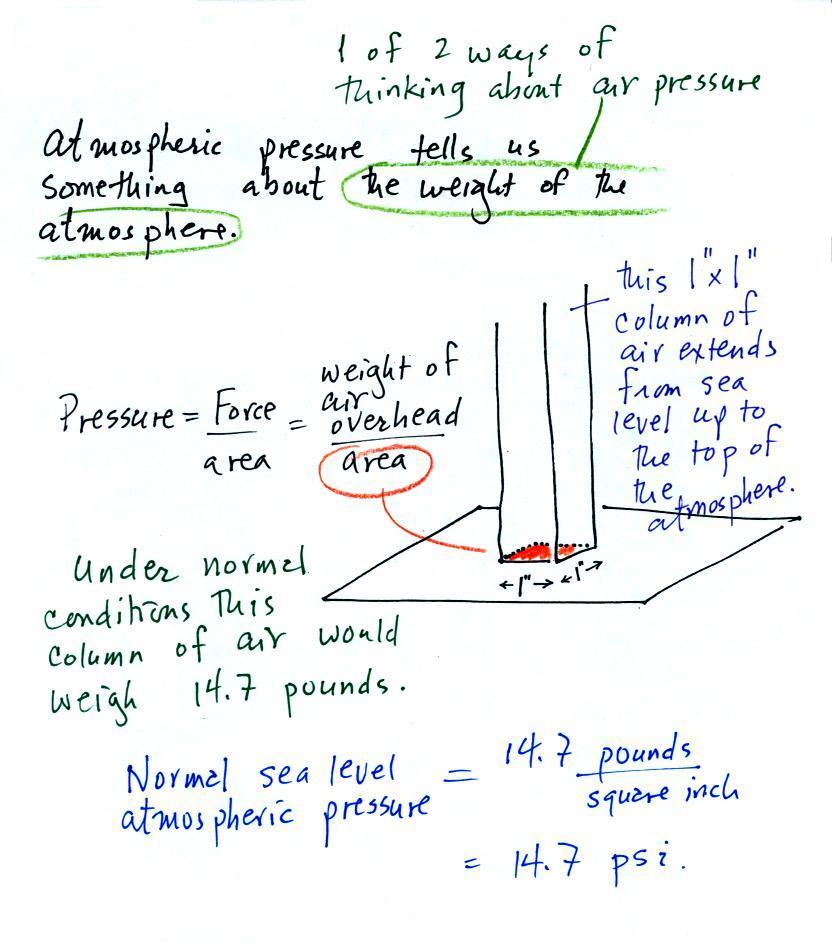 1 of 2 ways of
thinking about air pressure
atmospheric pressure tells us
something about the weight of the
atmosphere.
this 1"x1"
column of
air extends
from sea
level up to
the top of
the
atmosphere.
Pressure = Force / area = weight of air overhead / area
←1"→ ←1"→
Under normal
conditions This
column of air would
weigh 14.7 pounds.
Normal sea level
atmospheric pressure = 14.7 pounds / square inch
= 14.7 psi.